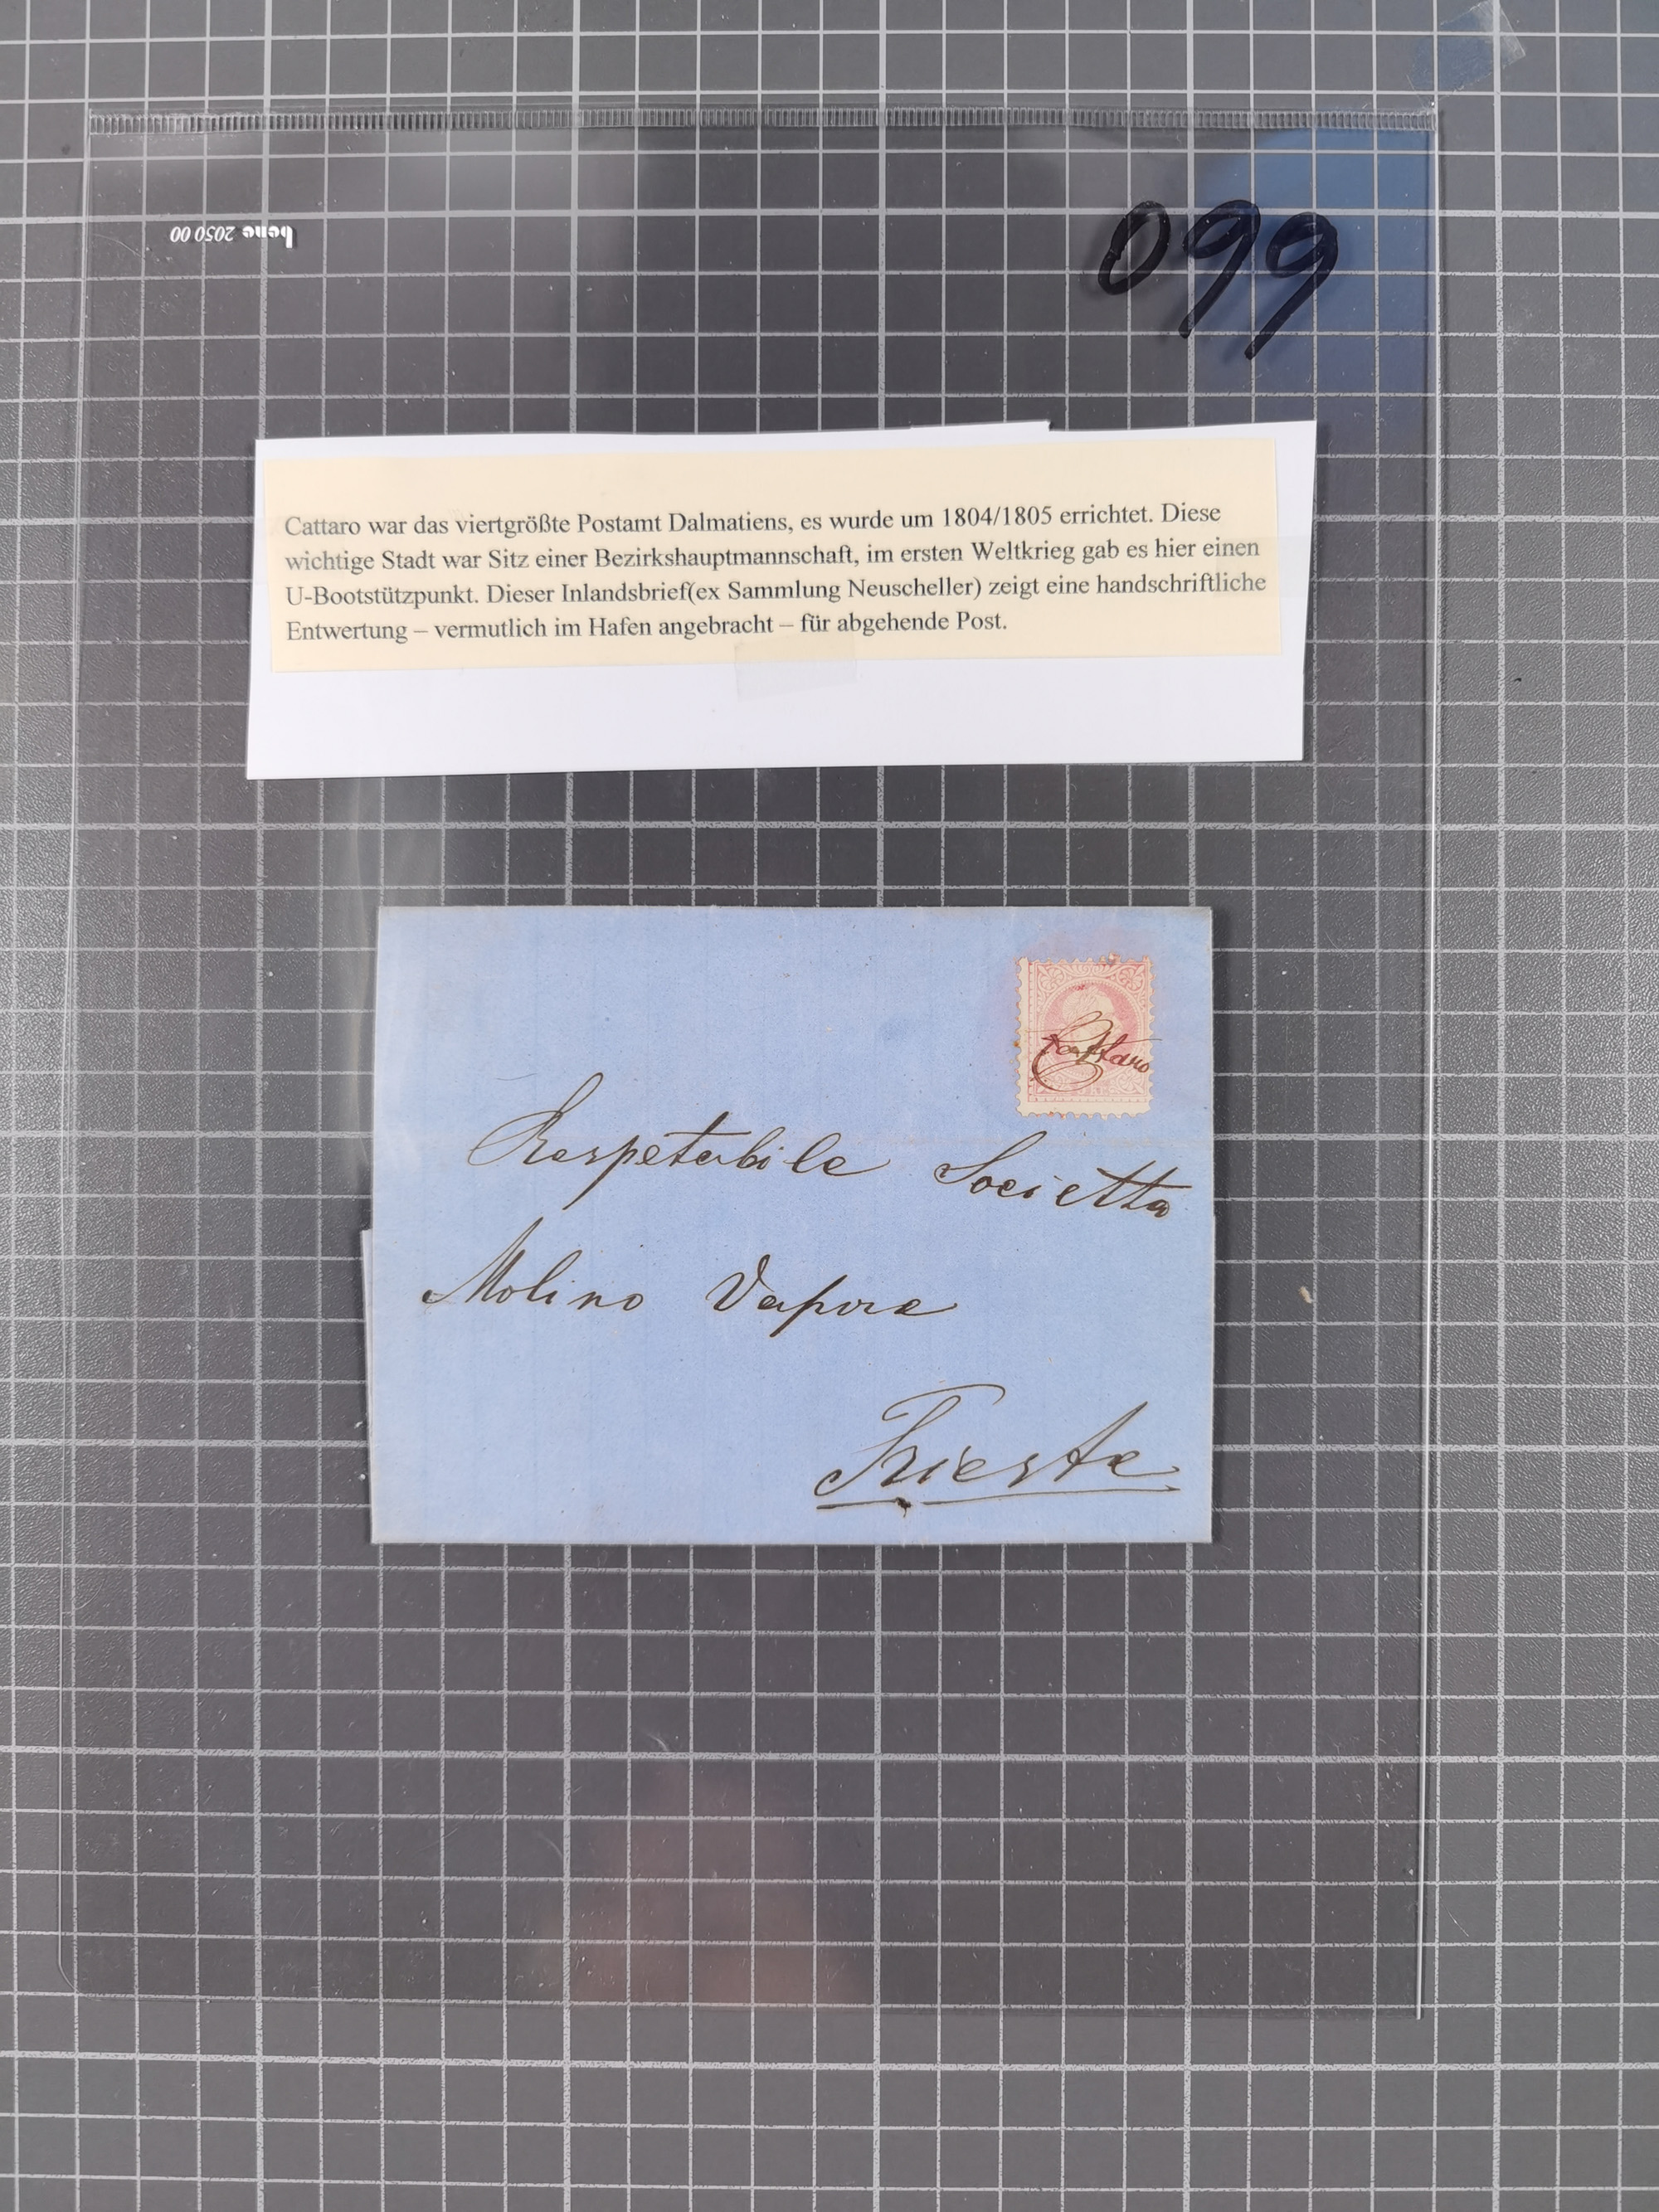 bene 2050 00
099
Cattaro war das viertgrößte Postamt Dalmatiens, es wurde um 1804/1805 errichtet. Diese
wichtige Stadt war Sitz einer Bezirkshauptmannschaft, im ersten Weltkrieg gab es hier einen
U-Bootstützpunkt. Dieser Inlandsbrief(ex Sammlung Neuscheller) zeigt eine handschriftliche
Entwertung – vermutlich im Hafen angebracht – für abgehende Post.
Cattaro
Respetabile Societta
Molino Vapore
Trieste